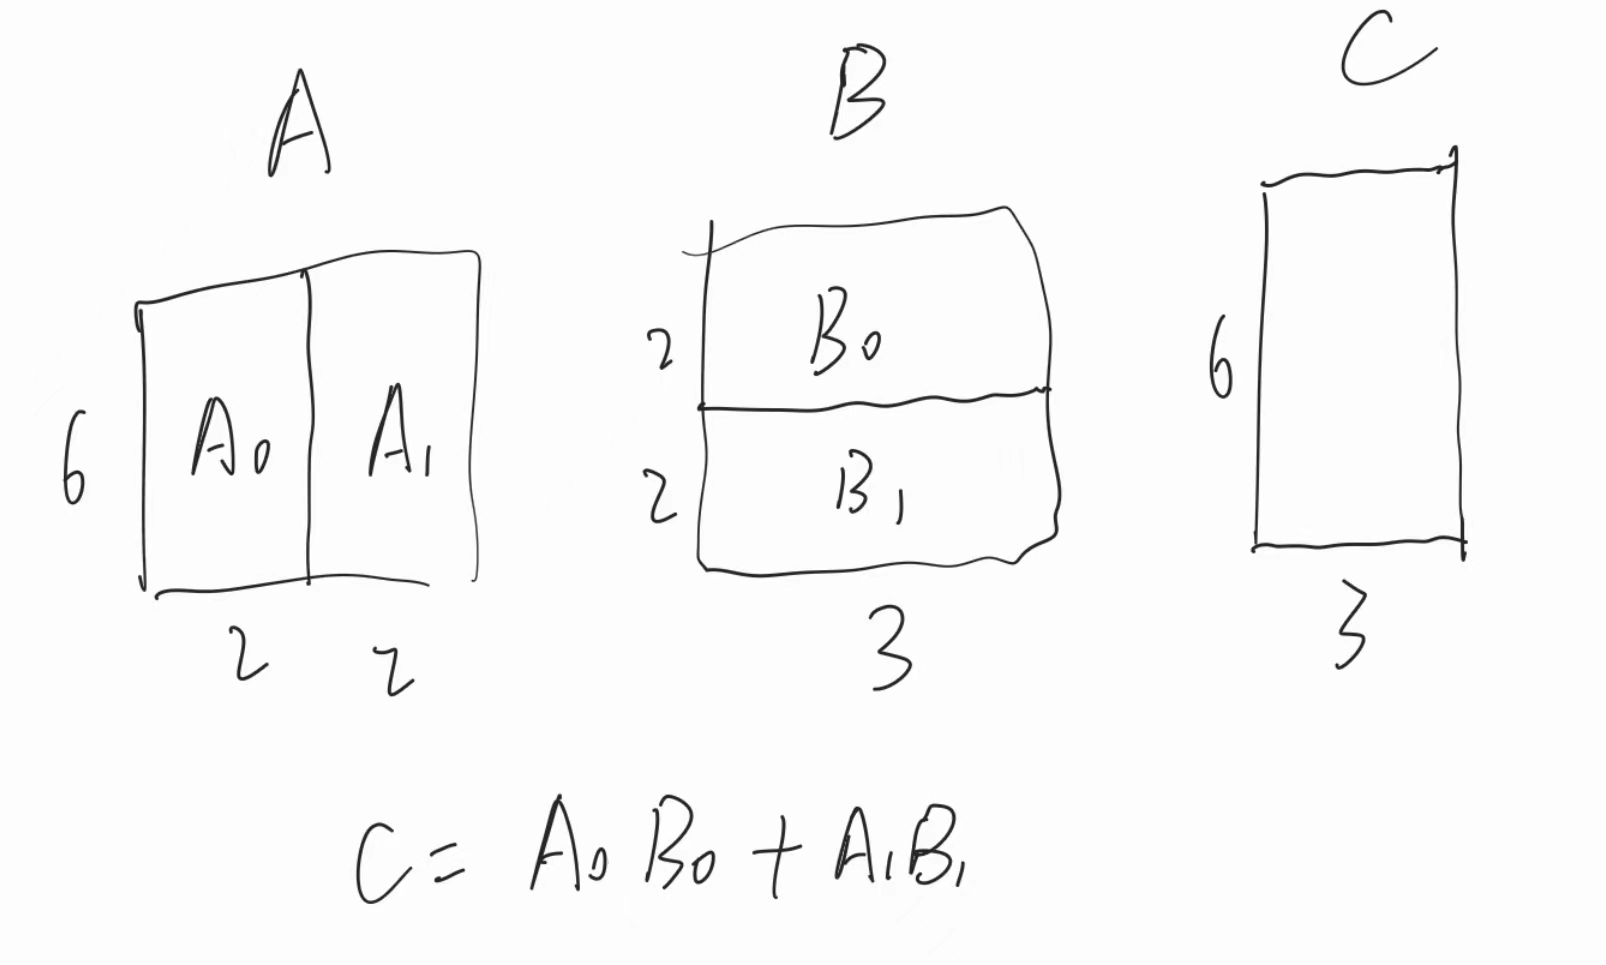 A
B
C
6
A₀
A₁
2
2
2
B₀
2
B₁
3
6
3
C = A₀ B₀ + A₁B₁